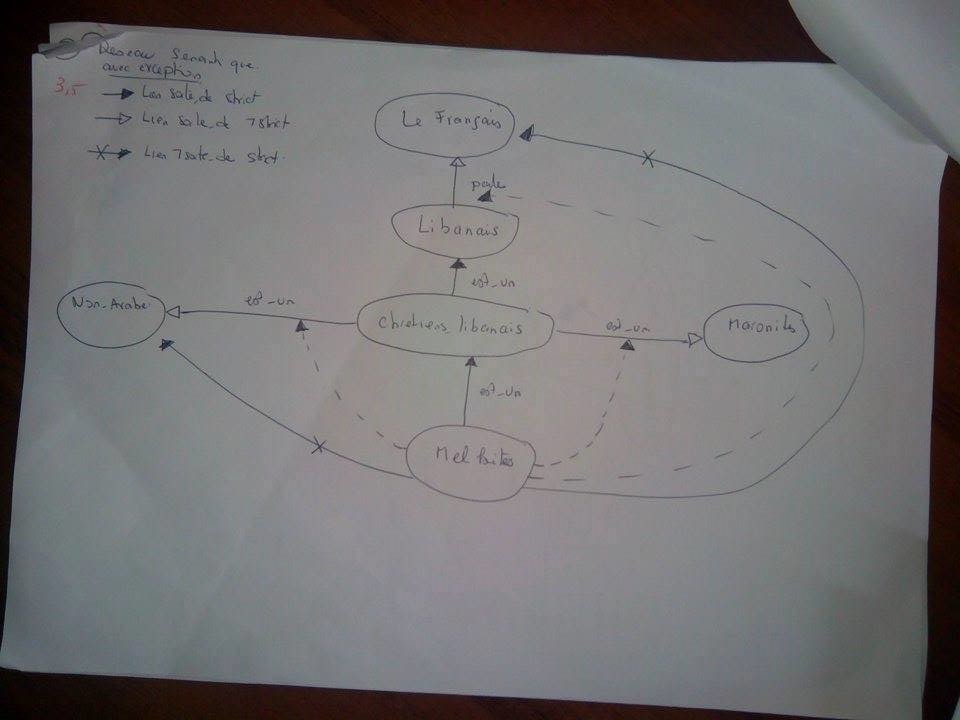 Reseau Semantique
avec exception
3,5
Lien sate_de strict
Lien sate_de 7strict
Lien 7sate_de strict.
Le Français
parle
Libanais
est_un
Non_Arabe
est_un
Chretiens libanais
est_un
Maronites
est_un
Melkites